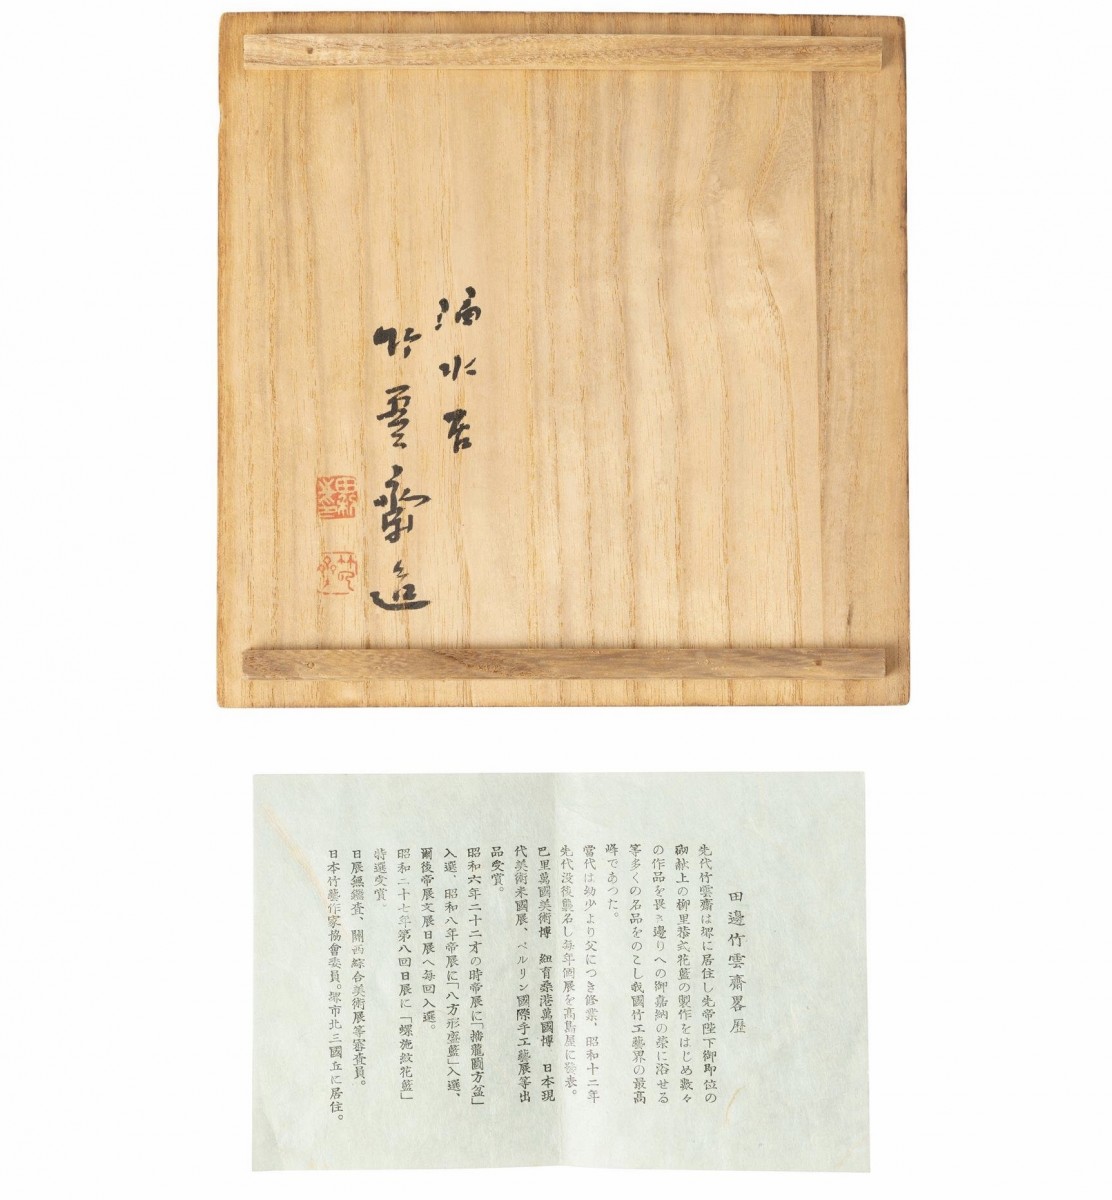 水居
竹雲齋造
田邊竹雲齋畧歴
先代竹雲齋は堺に居住し先帝陛下御即位の
御献上の柳里恭式花籃の製作をはじめ数々
の作品を畏き邊りへの御嘉納の榮に浴せる
等多くの名品をのこし我國竹工藝界の最高
峰であつた。
當代は幼少より父につき修業、昭和十二年
先代没後襲名し毎年個展を髙島屋に發表。
巴里萬國美術博　紐育桑港萬國博　日本現
代美術米國展、ベルリン國際手工藝展等出
品受賞。
昭和六年二十二才の時帝展に「蟠龍圖方盆」
入選、昭和八年帝展に「八方形盛籃」入選、
爾後帝展文展日展へ毎回入選。
昭和二十七年第八回日展に「螺旋紋花籃」
特選受賞。
日展無鑑査、關西綜合美術展等審査員。
日本竹藝作家協會委員。堺市北三國丘に居住。